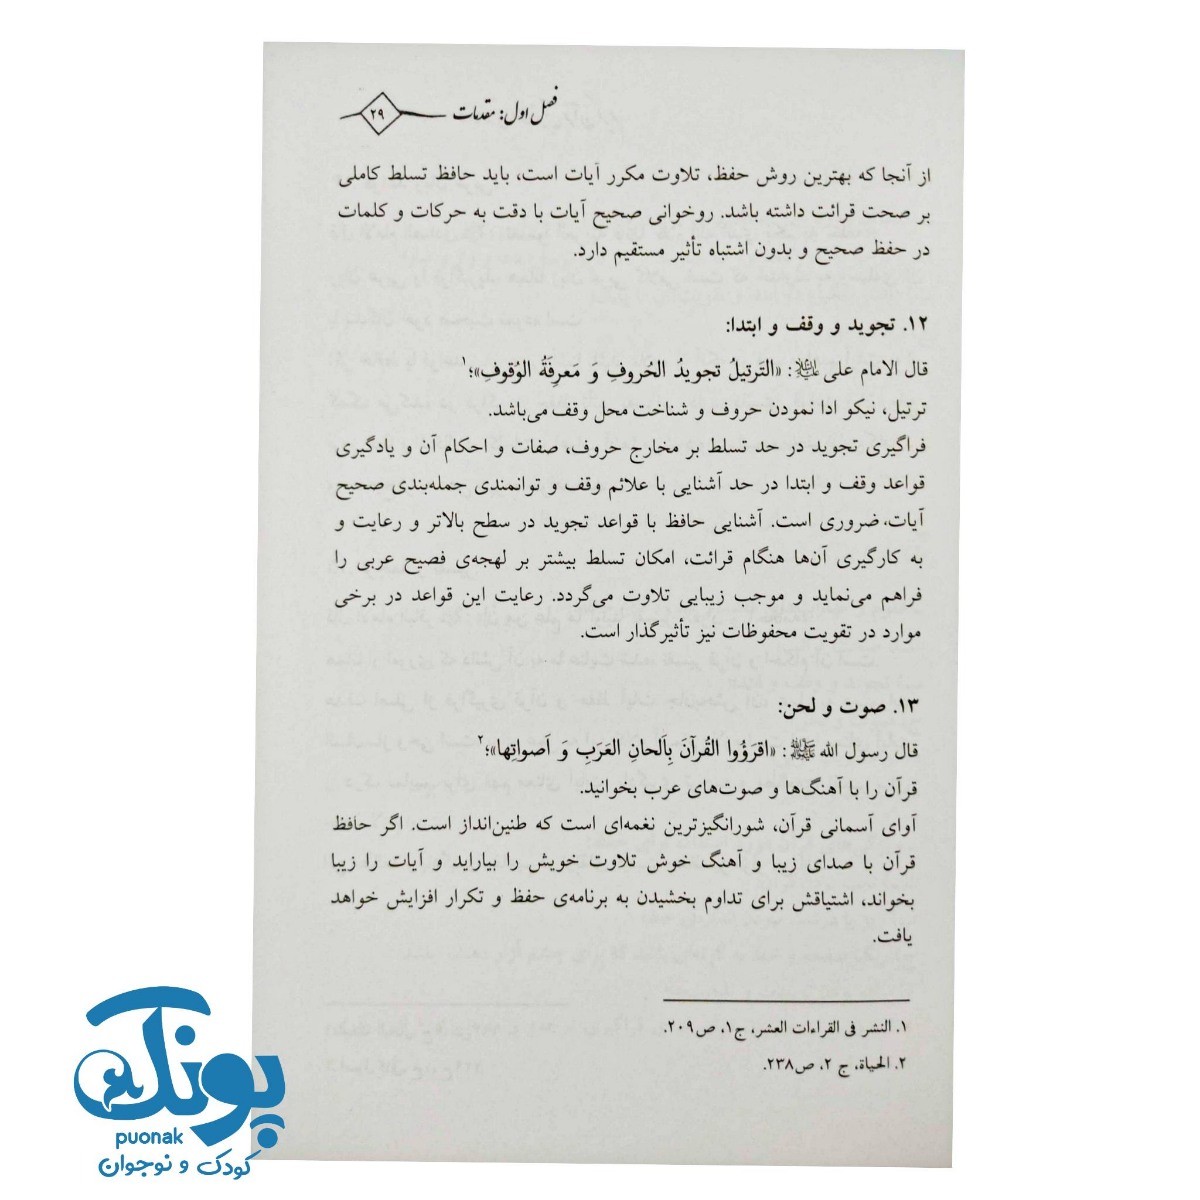 فصل اول: مقدمات ۲۹
از آنجا که بهترین روش حفظ، تلاوت مکرر آیات است، باید حافظ تسلط کاملی
بر صحت قرائت داشته باشد. روخوانی صحیح آیات با دقت به حرکات و کلمات
در حفظ صحیح و بدون اشتباه تأثیر مستقیم دارد.
۱۲. تجوید و وقف و ابتدا:
قال الامام علی علیه‌السلام: «التَرتیلُ تجویدُ الحُروفِ وَ مَعرِفَةُ الوُقوفِ»؛۱
ترتیل، نیکو ادا نمودن حروف و شناخت محل وقف می‌باشد.
فراگیری تجوید در حد تسلط بر مخارج حروف، صفات و احکام آن و یادگیری
قواعد وقف و ابتدا در حد آشنایی با علائم وقف و توانمندی جمله‌بندی صحیح
آیات، ضروری است. آشنایی حافظ با قواعد تجوید در سطح بالاتر و رعایت و
به کارگیری آن‌ها هنگام قرائت، امکان تسلط بیشتر بر لهجه‌ی فصیح عربی را
فراهم می‌نماید و موجب زیبایی تلاوت می‌گردد. رعایت این قواعد در برخی
موارد در تقویت محفوظات نیز تأثیرگذار است.
۱۳. صوت و لحن:
قال رسول الله ﷺ: «اقرَؤُوا القُرآنَ بِاَلحانِ العَرَبِ وَ اَصواتِها»؛۲
قرآن را با آهنگ‌ها و صوت‌های عرب بخوانید.
آوای آسمانی قرآن، شورانگیزترین نغمه‌ای است که طنین‌انداز است. اگر حافظ
قرآن با صدای زیبا و آهنگ خوش تلاوت خویش را بیاراید و آیات را زیبا
بخواند، اشتیاقش برای تداوم بخشیدن به برنامه‌ی حفظ و تکرار افزایش خواهد
یافت.
۱. النشر فی القراءات العشر، ج۱، ص۲۰۹.
۲. الحیاة، ج ۲، ص۲۳۸.
پونک
puonak
کودک و نوجوان